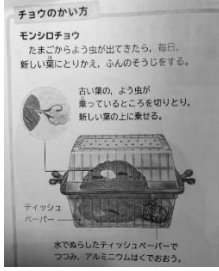 チョウのかい方
モンシロチョウ
たまごからよう虫が出てきたら,毎日,
新しい葉にとりかえ,ふんのそうじをする。
古い葉の,よう虫が
乗っているところを切りとり,
新しい葉の上に乗せる。
ティッシュ
ペーパー
水でぬらしたティッシュペーパーで
つつみ,アルミニウムはくでおおう。